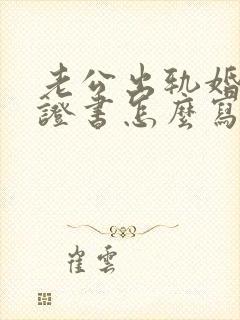 老公出轨婚
證書怎麼寫
崔雲